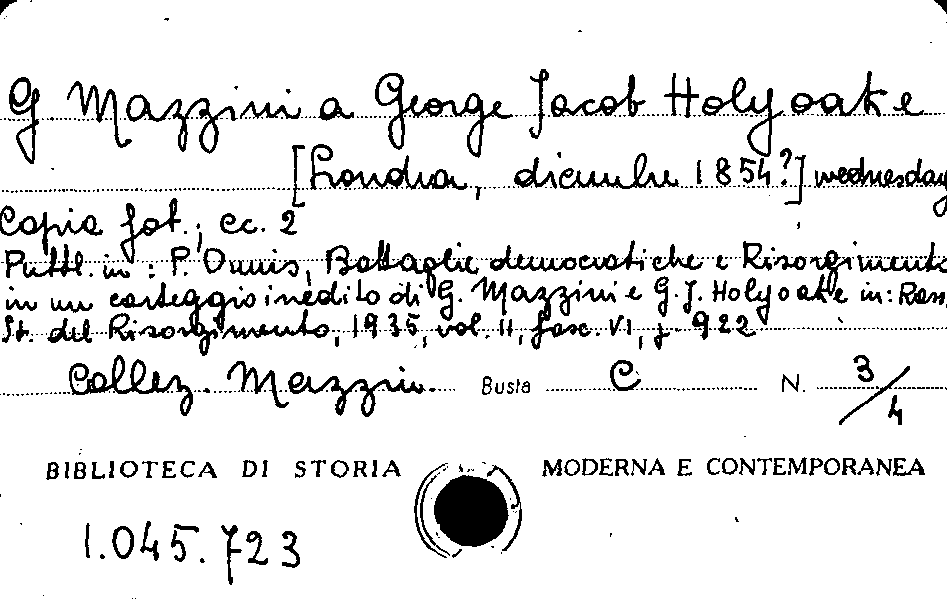 G Mazzini a George Jacob Holyoake
[Londra, dicembre 1854?] wednesday
Copia fot.; cc. 2
Pubbl. in: P. Ounis, Battaglie democratiche e Risorgimento
in un carteggio inedito di G. Mazzini e G. J. Holyoake in: Rass.
St. del Risorgimento, 1935, vol. II, fasc. VI, p. 922
Collez. Mazzini. Busta C N. 3/4
BIBLIOTECA DI STORIA MODERNA E CONTEMPORANEA
1.045.723